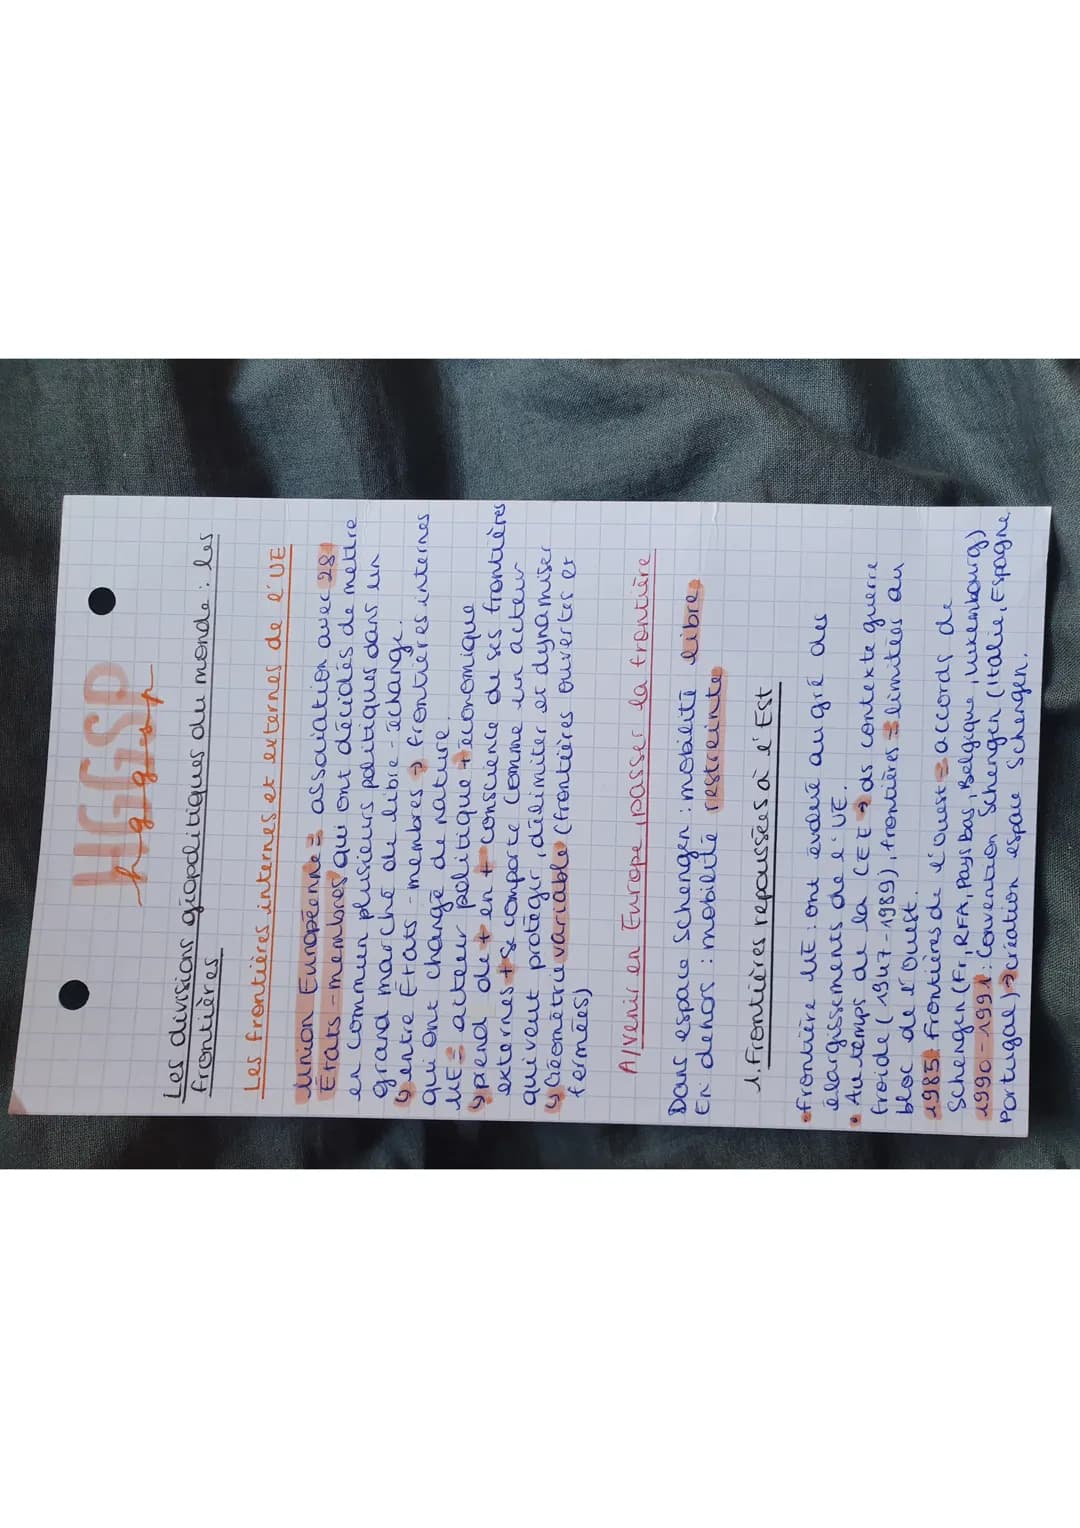 HGGSP
hggsp
Les divisions géopolitiques du monde : les
frontières
Les frontières internes et externes de l'UE
Union Européenne = association avec 28
États-membres qui ont décidés de mettre
en commun plusieurs politiques dans un
grand marché de libre-échange.
↳ entre États-membres → frontières internes
qui ont changé de nature.
UE = acteur politique + économique
↳ prend de + en + conscience de ses frontières
externes + se comporte comme un acteur
qui veut protéger, délimiter et dynamiser
↳ Géométrie variable (frontières ouvertes et
fermées)
A/Venir en Europe, passer la frontière
Dans espace Schengen : mobilité libre
En dehors : mobilité restreinte
1. Frontières repoussées à l'Est
• Frontière UE : ont évolué au gré des
élargissements de l'UE.
• Au temps de la CEE → ds contexte guerre
froide (1947-1989), frontières = limitées au
bloc de l'Ouest.
1985 : Frontières de l'ouest = accords de
Schengen (Fr, RFA, Pays Bas, Belgique, Luxembourg)
1990-1991 : Convention Schengen (Italie, Espagne,
Portugal) → création espace Schengen.